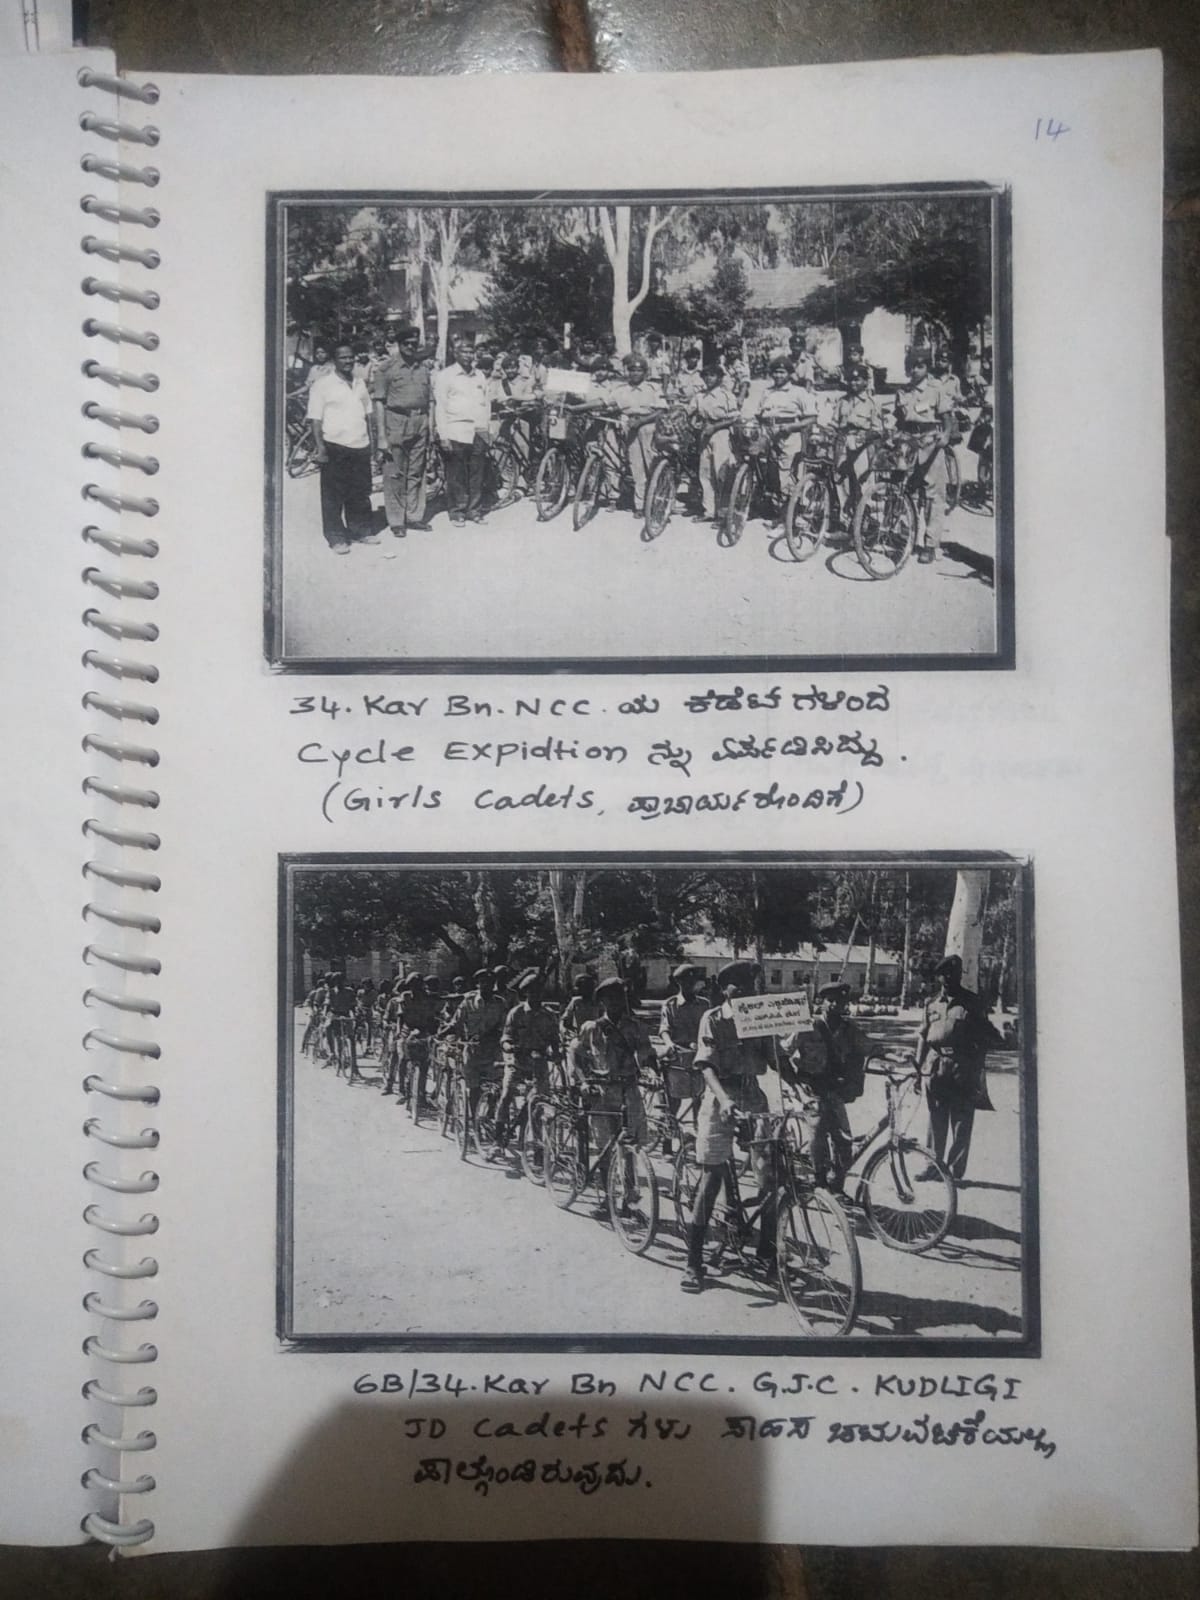 14
34. Kar Bn. NCC. ಯ ಕೆಡೆಟ್ ಗಳಿಂದ
Cycle Expidtion ನ್ನು ಏರ್ಪಡಿಸಿದ್ದು.
(Girls Cadets, ಪ್ರಾಚಾರ್ಯರೊಂದಿಗೆ)
ಸೈಕಲ್
6B/34. Kar Bn NCC. G.J.C. KUDLIGI
JD Cadets ಗಳು ಸಾಹಸ ಚಟುವಟಿಕೆಯಲ್ಲಿ
ಪಾಲ್ಗೊಂಡಿರುವುದು.